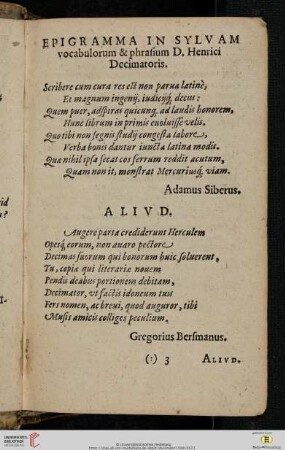 EPIGRAMMA IN SYLVAM
vocabulorum & phrasium D. Henrici
Decimatoris.
Scribere cum cura res est non parua latinè,
Et magnum ingenij, iudicijq; decus:
Quem puer, adspiras quicunq; ad laudis honorem,
Hunc librum in primis euoluisse velis.
Quo tibi non segnis studij congesta labore,
Verba bonis dantur iuncta latina modis.
Qua nihil ipsa secat cos ferrum reddit acutum,
Quam non it, monstrat Mercuriusq; viam.
Adamus Siberus.
ALIVD.
Augere parta crediderunt Herculem
Opesq; eorum, non auaro pectore
Decimas suorum qui bonorum huic soluerent,
Tu, copiæ qui literariæ nouem
Pendis deabus portionem debitam,
Decimator, vt factis idoneum tuis
Fers nomen, ac breui, quod auguror, tibi
Musis amicis colliges peculium.
Gregorius Bersmanus.
(:) 3 ALIVD.